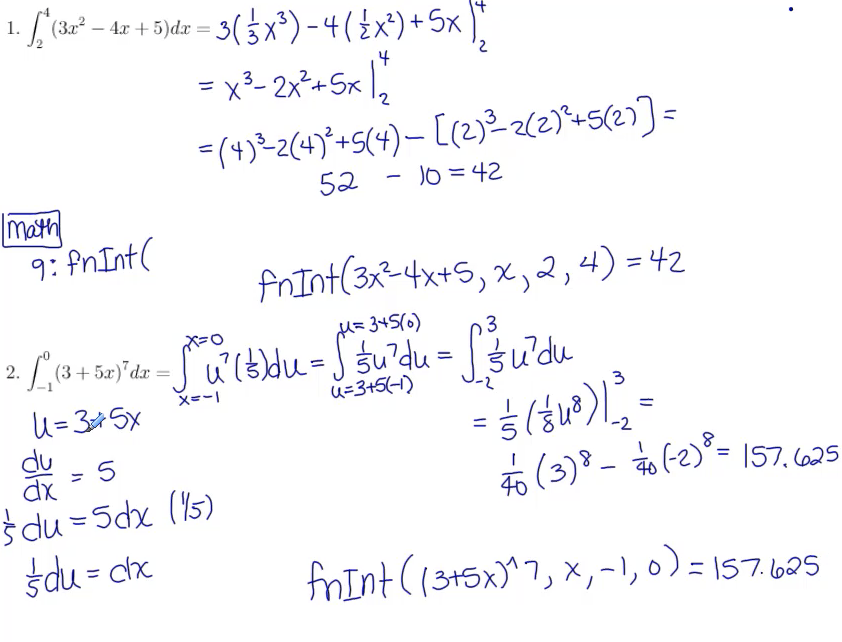 1. ∫₂⁴ (3x² − 4x + 5)dx = 3(1/3 x³) − 4(1/2 x²) + 5x |₂⁴
= x³ − 2x² + 5x |₂⁴
= (4)³ − 2(4)² + 5(4) − [(2)³ − 2(2)² + 5(2)] =
52 − 10 = 42
Math
9: fnInt(
fnInt(3x² − 4x + 5, x, 2, 4) = 42
2. ∫₋₁⁰ (3 + 5x)⁷ dx = ∫ x=−1 x=0 u⁷(1/5)du = ∫ u=3+5(−1) u=3+5(0) 1/5 u⁷ du = ∫₋₂³ 1/5 u⁷ du
u = 3+5x
= 1/5 (1/8 u⁸) |₋₂³ =
du/dx = 5
1/40 (3)⁸ − 1/40 (−2)⁸ = 157.625
1/5 du = 5dx (1/5)
1/5 du = dx
fnInt((3+5x)^7, x, −1, 0) = 157.625